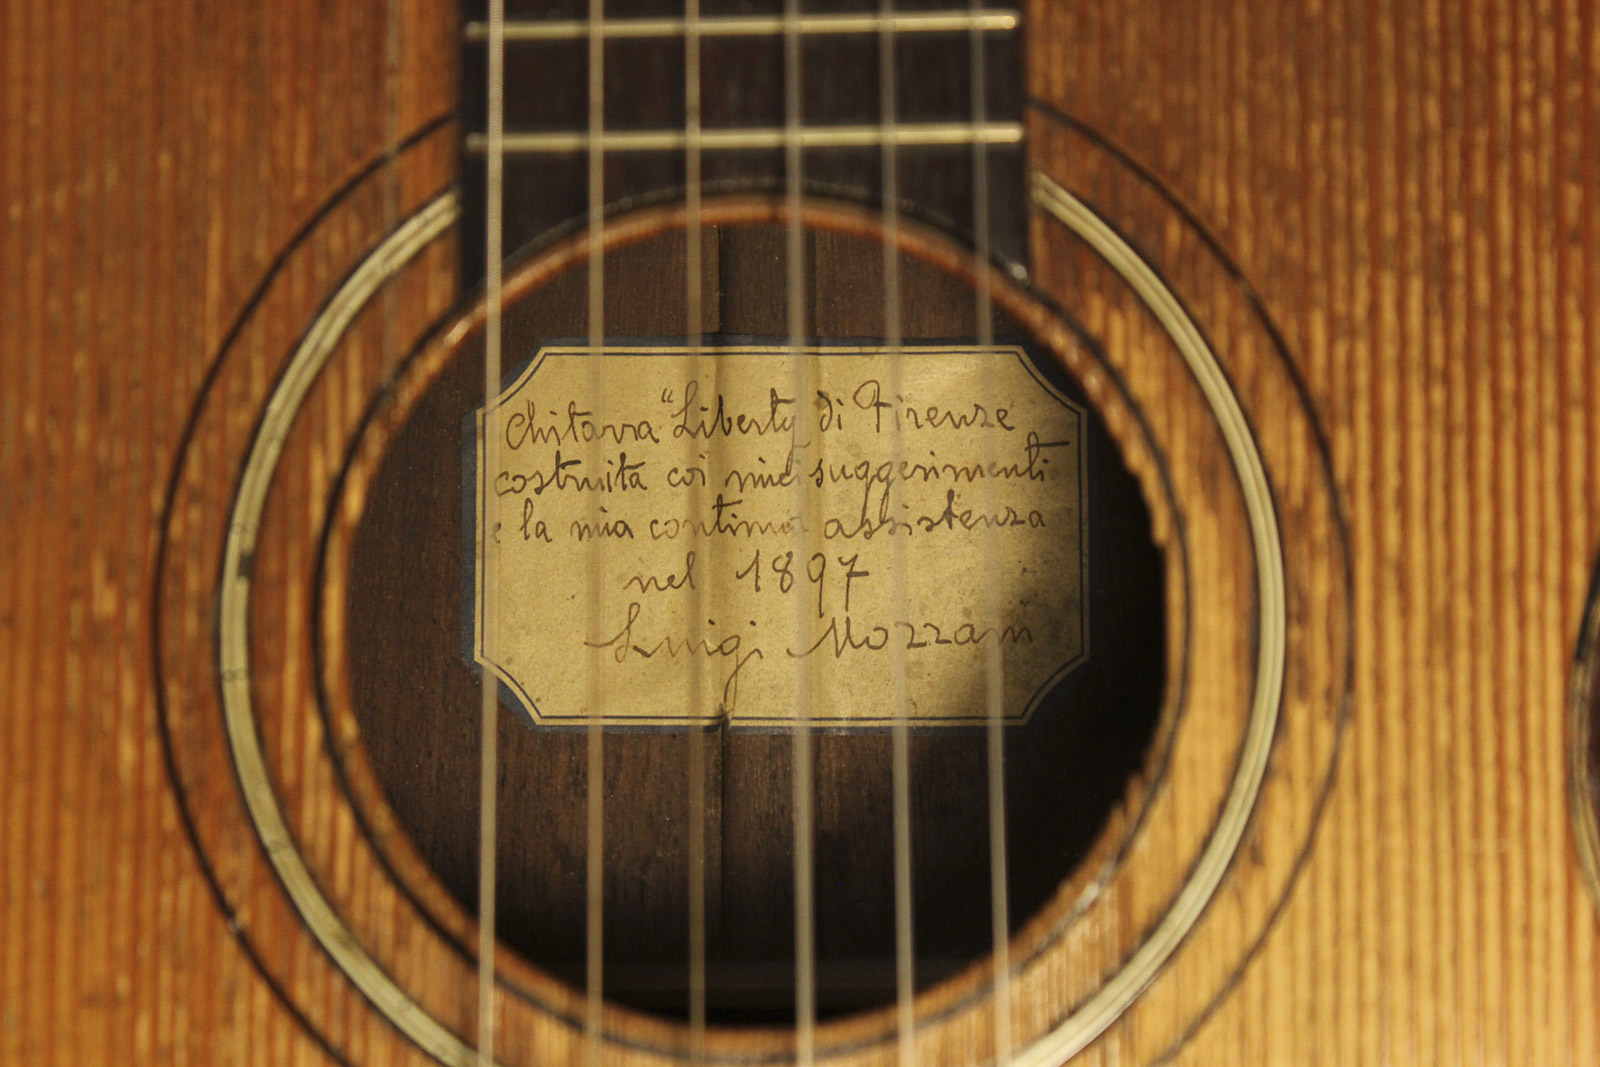 Chitarra "Liberty di Firenze
costruita coi miei suggerimenti
e la mia continua assistenza
nel 1897
Luigi Mozzani